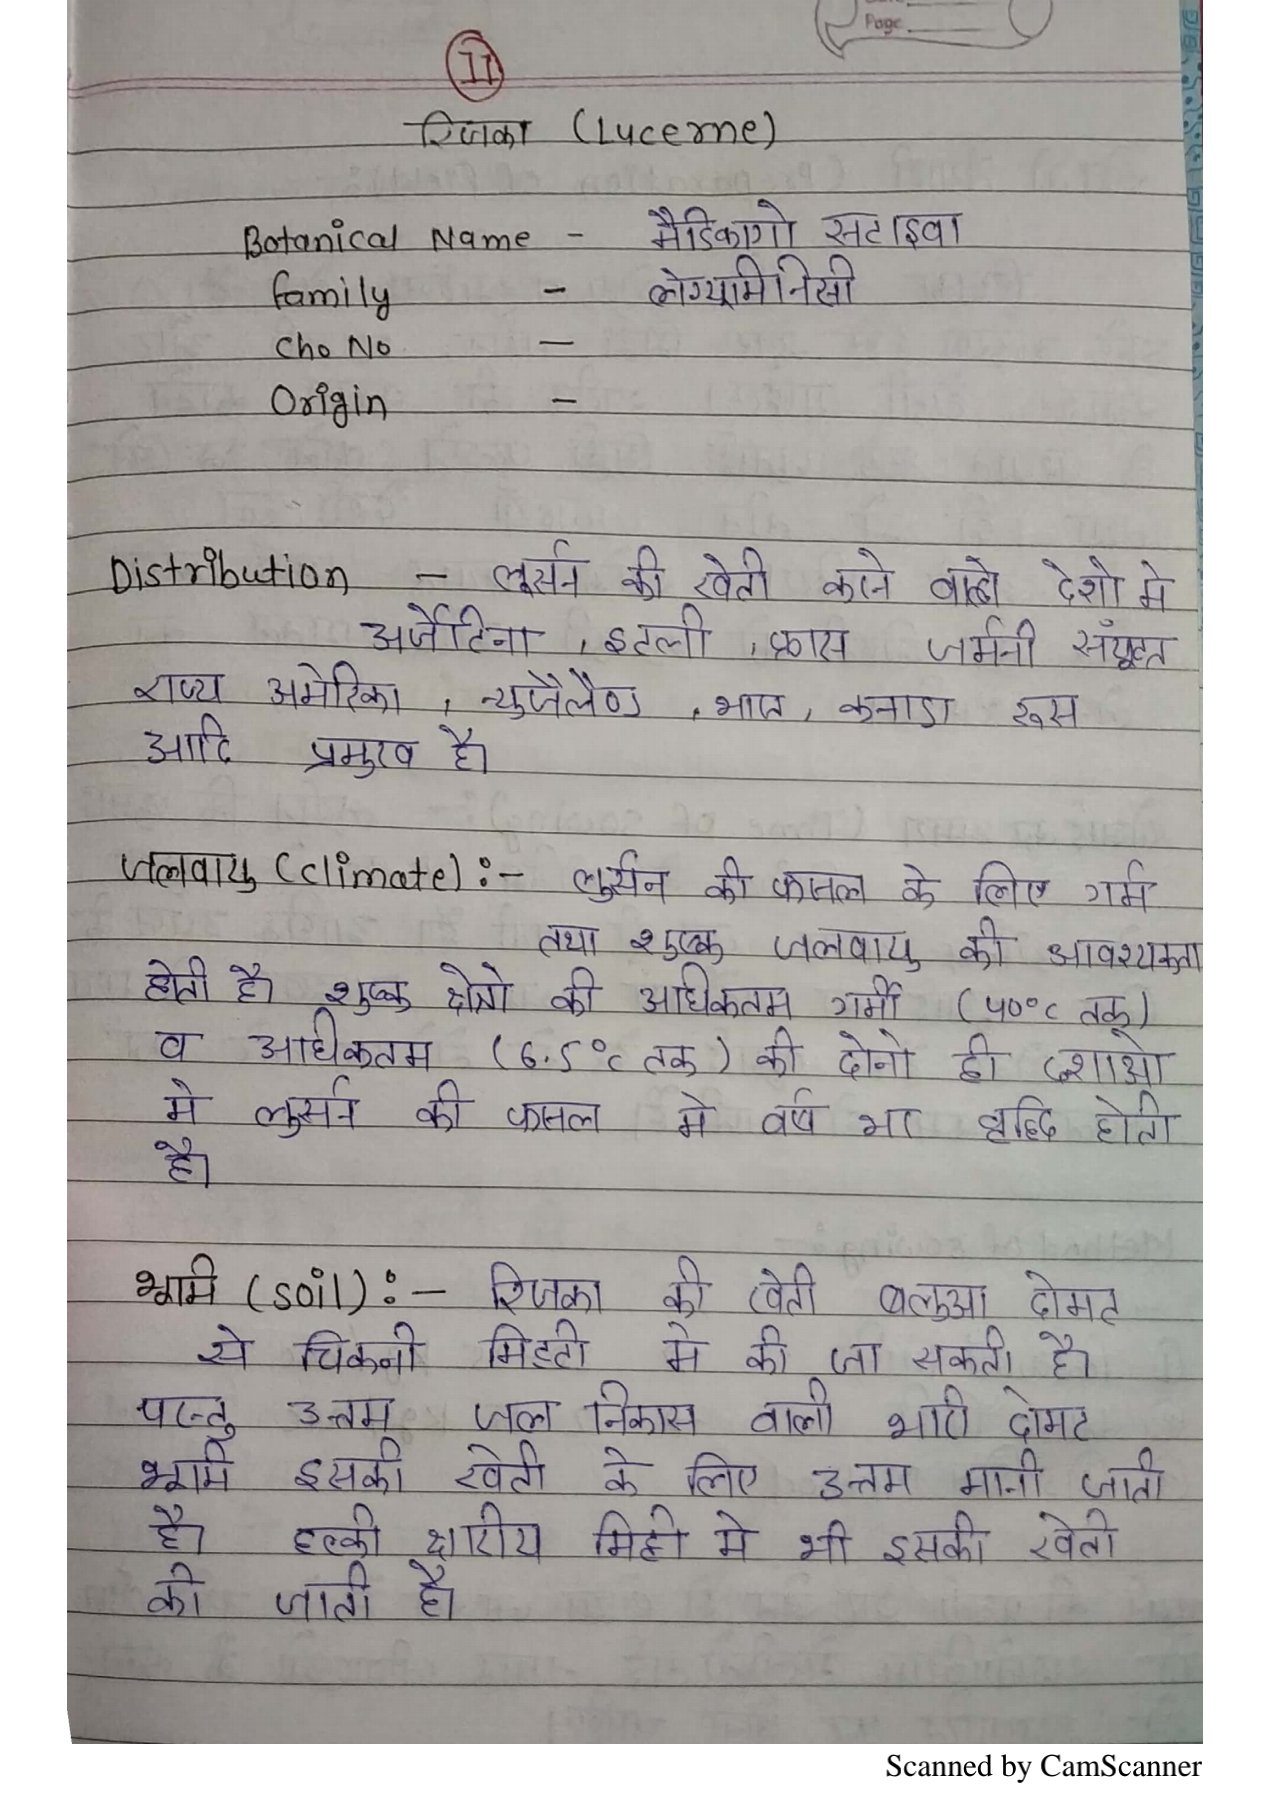 Page
II
रिजका (Lucerne)
Botanical Name - मैडिकागो सटाइवा
family - लेग्यूमिनिसी
Cho No -
Origin -
Distribution - लूर्सन की खेती करने वाले देशो मे
अर्जेंटिना , इटली , फ्रास जर्मनी संयुक्त
राज्य अमेरिका , न्युजैलैण्ड , भारत , कनाडा रूस
आदि प्रमुख है।
जलवायु (climate) :- लुर्सन की फसल के लिए गर्म
तथा शुष्क जलवायु की आवश्यकता
होती है। शुष्क क्षेत्रो की अधिकतम गर्मी (50°c तक)
व अधिकतम (6.5°c तक) की दोनो ही दशाओ
मे लुर्सन की फसल मे वर्ष भर वृद्दि होती
है।
भूमि (soil) :- रिजका की खेती बलुआ दोमट
से चिकनी मिट्टी मे की जा सकती है।
परन्तु उत्तम जल निकास वाली भारी दोमट
भूमि इसकी खेती के लिए उत्तम मानी जाती
है। हल्की क्षारीय मिट्टी मे भी इसकी खेती
की जाती है।
Scanned by CamScanner